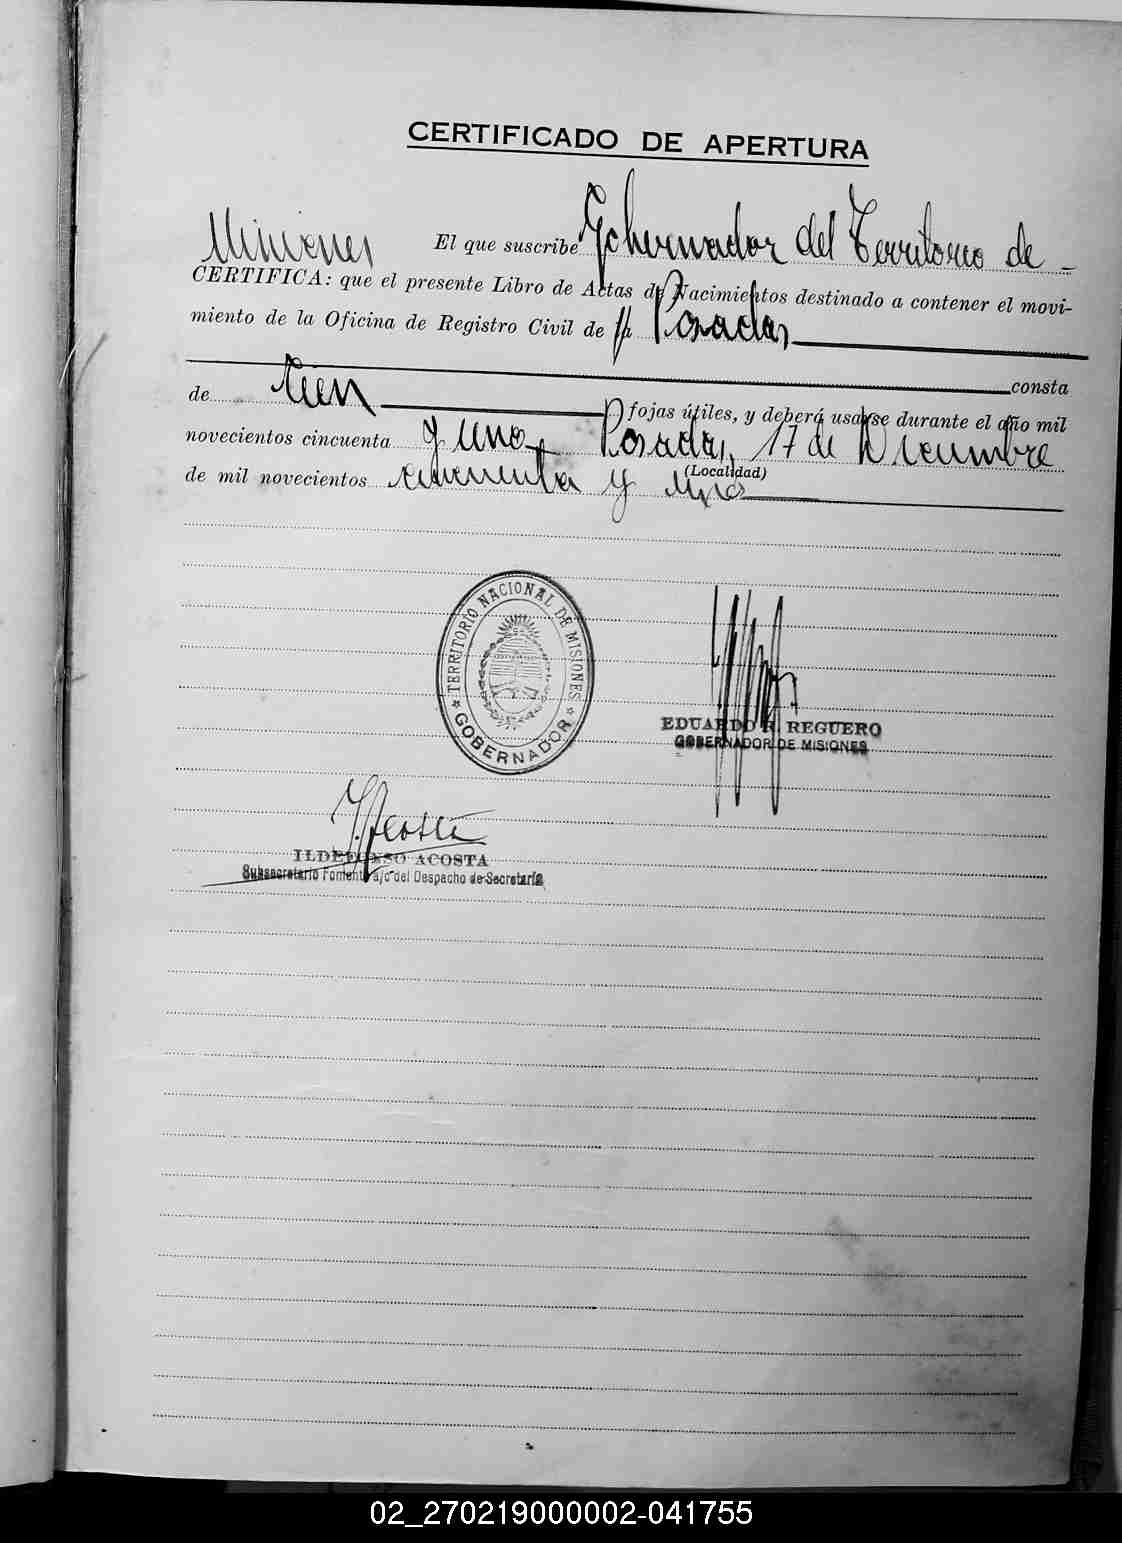 CERTIFICADO DE APERTURA
El que suscribe Gobernador del Territorio de
Misiones
CERTIFICA: que el presente Libro de Actas de Nacimientos destinado a contener el movi-
miento de la Oficina de Registro Civil de Posadas
consta
de Cien fojas útiles, y deberá usarse durante el año mil
novecientos cincuenta y uno Posadas, 17 de Diciembre
(Localidad)
de mil novecientos cincuenta y uno
TERRITORIO NACIONAL DE MISIONES
GOBERNADOR
EDUARDO R. REGUERO
GOBERNADOR DE MISIONES
Acosta
ILDEFONSO ACOSTA
Subsecretario Fomento a/c del Despacho de Secretaría
02_270219000002-041755